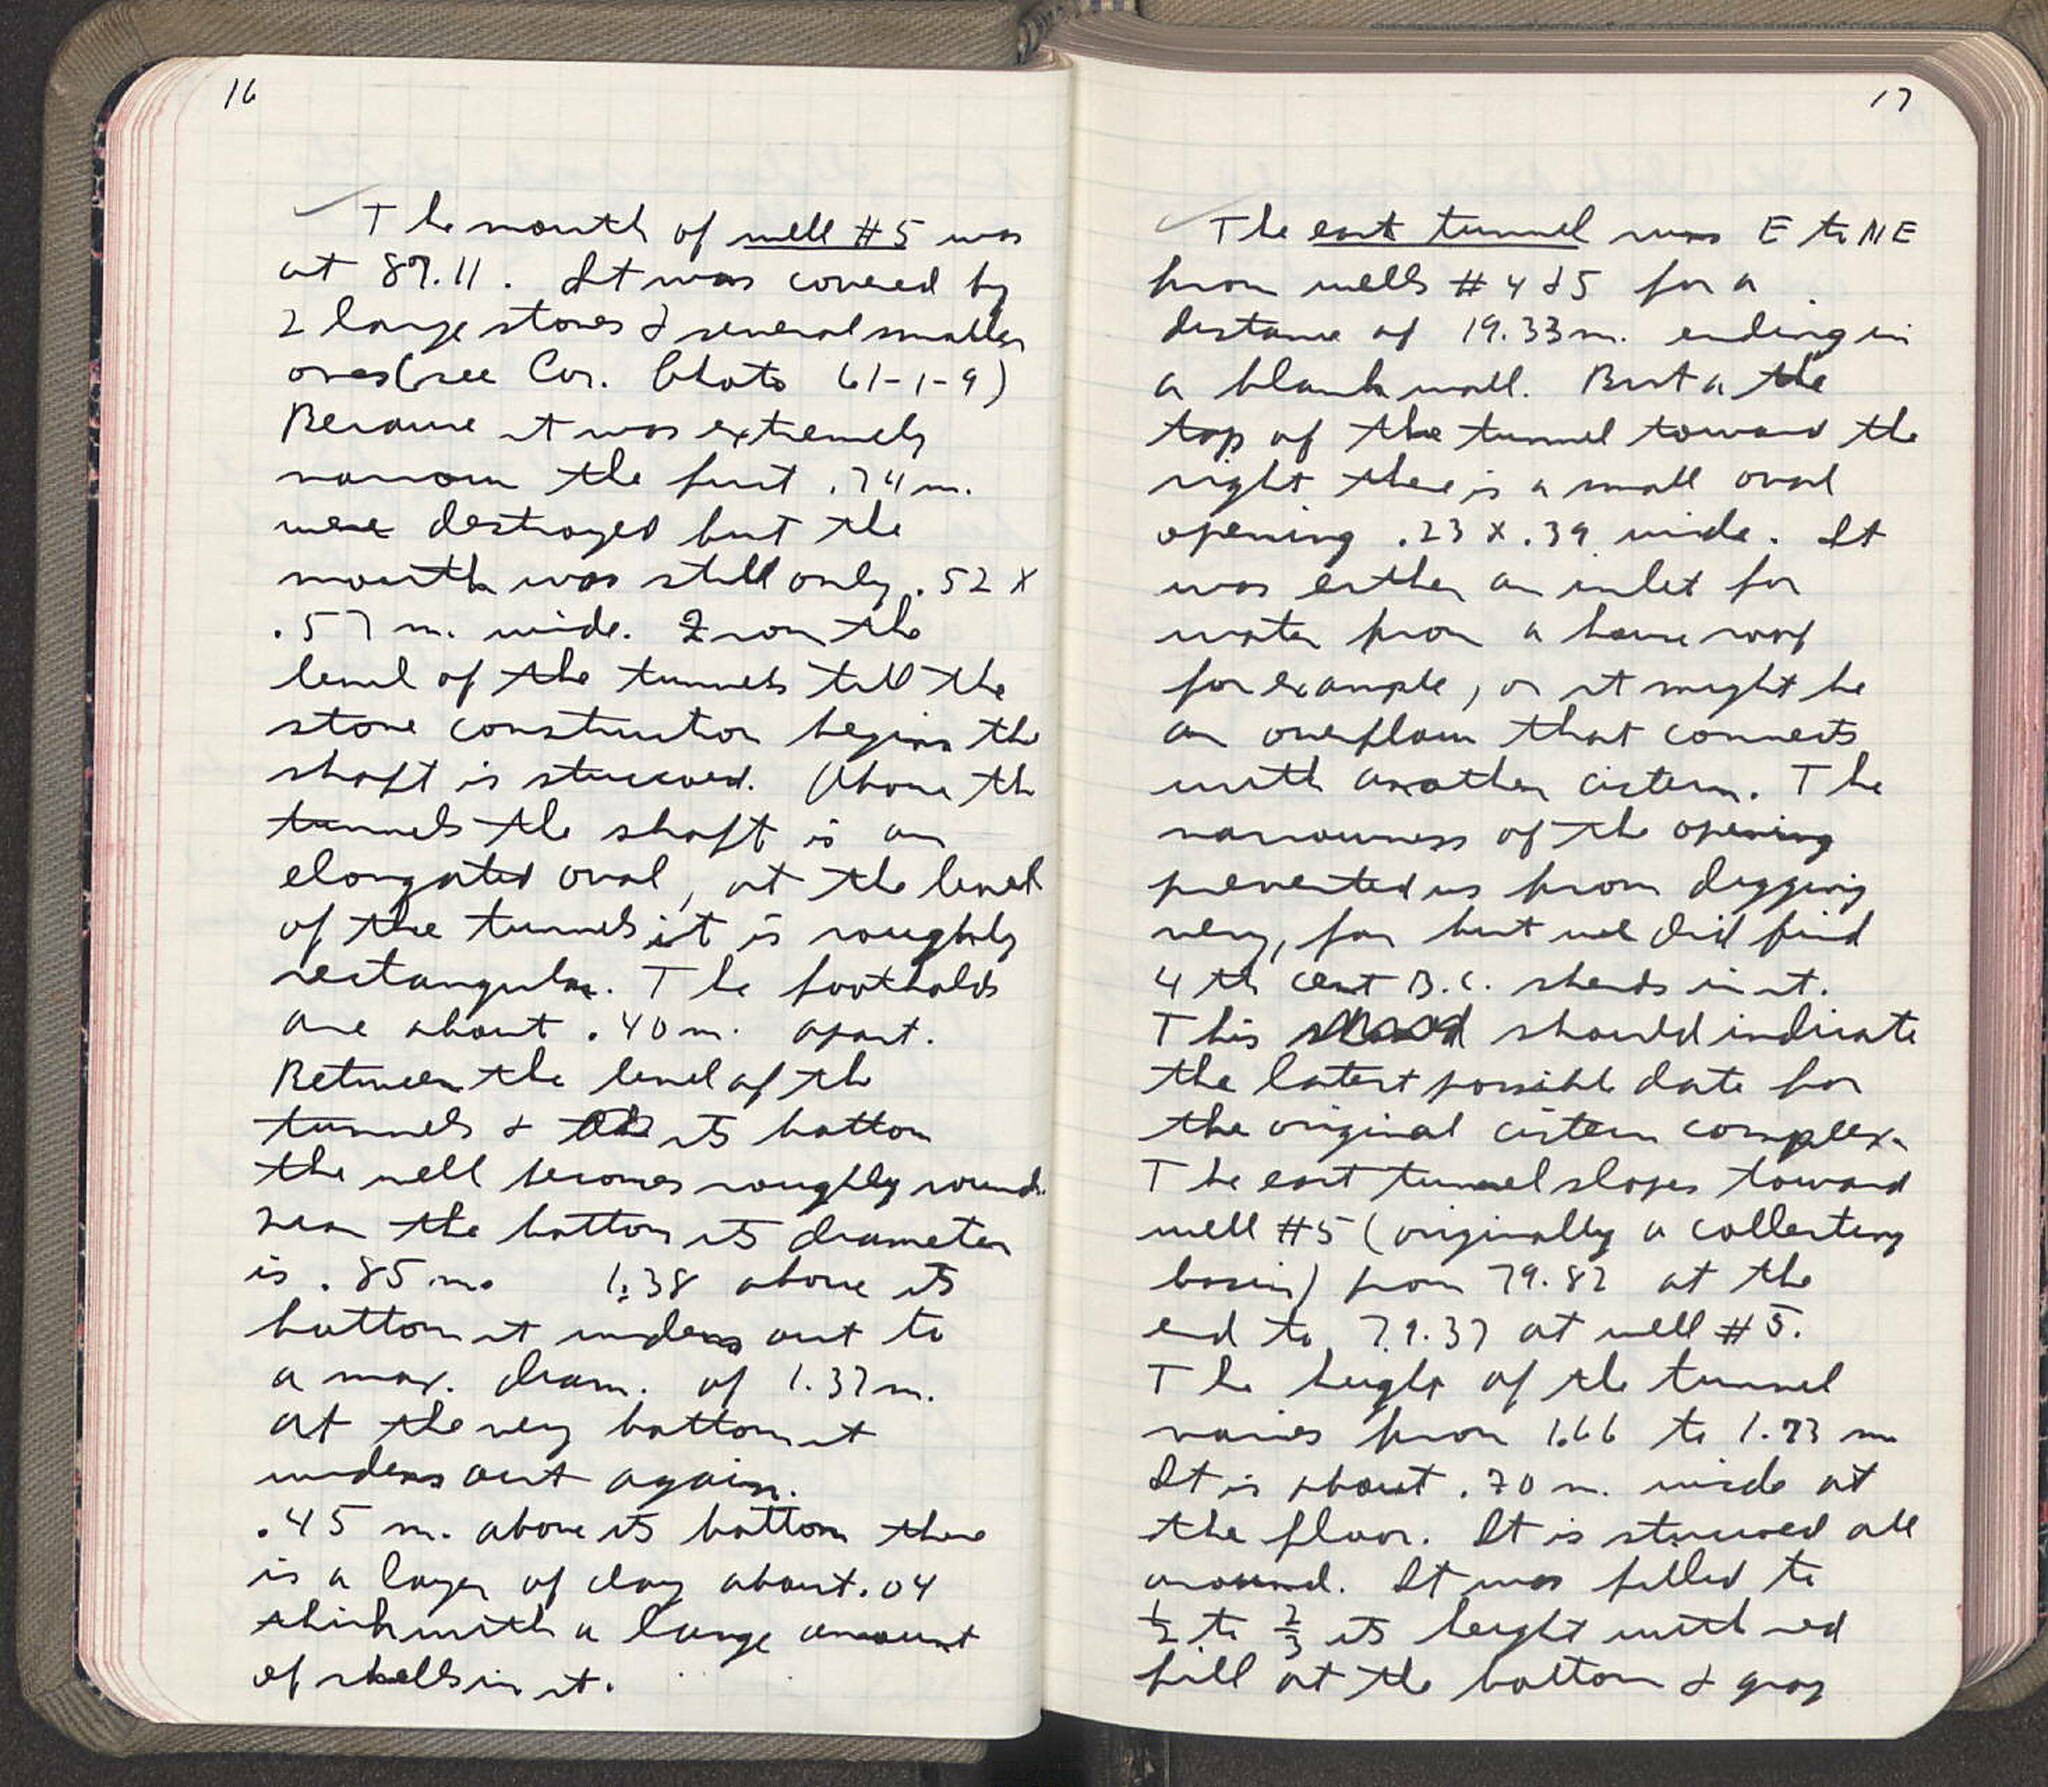 16
The mouth of well #5 was
at 87.11. It was covered by
2 large stones & several smaller
ones (see Cor. Photo 61-1-9)
Because it was extremely
narrow the first .74 m.
were destroyed but the
mouth was still only .52 x
.57 m. wide. From the
level of the tunnels till the
stone construction begins the
shaft is stuccoed. Above the
tunnels the shaft is an
elongated oval, at the level
of the tunnels it is roughly
rectangular. The footholds
are about .40 m. apart.
Between the level of the
tunnels & its bottom
the well becomes roughly round.
near the bottom its diameter
is .85 m. 1.38 above its
bottom it widens out to
a max. diam. of 1.37 m.
at the very bottom it
widens out again.
.45 m. above its bottom there
is a layer of clay about .04
thick with a large amount
of shells in it.
17
The east tunnel runs E to NE
from wells #4 & 5 for a
distance of 19.33 m. ending in
a blank wall. But a the
top of the tunnel toward the
right there is a small oval
opening .23 x .39 wide. It
was either an inlet for
water from a house roof
for example, or it might be
an overflow that connects
with another cistern. The
narrowness of the opening
prevented us from digging
very far but we did find
4th cent B.C. sherds in it.
This should indicate
the latest possible date for
the original cistern complex.
The east tunnel slopes toward
well #5 (originally a collecting
basin) from 79.82 at the
end to 79.37 at well #5.
The height of the tunnel
varies from 1.66 to 1.73 m
It is about .70 m. wide at
the floor. It is stuccoed all
around. It was filled to
1/2 to 2/3 its height with red
fill at the bottom & gray